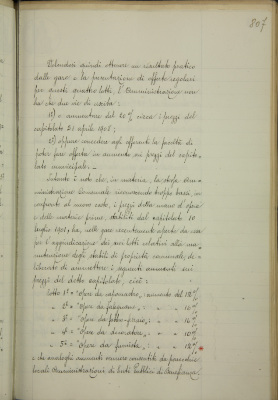 807
Volendosi quindi ottenere un risultato pratico
dalle gare e la presentazione di offerte regolari
per questi quattro lotti, l'Amministrazione non
ha che due vie di uscita:
1°) o aumentare del 20% circa i prezzi del
capitolato 21 aprile 1908;
2°) oppure concedere agli offerenti la facoltà di
poter fare offerte in aumento sui prezzi del capito-
lato municipale.-
Intanto è noto che, in materia, la stessa Am-
ministrazione Comunale riconoscendo troppo bassi, in
confronto al nuovo costo, i prezzi della mano d'opera
e delle materie prime, stabiliti dal capitolato 10
luglio 1901, ha, nelle gare recentemente aperte da essa
per l'aggiudicazione dei vari lotti relativi alla ma-
nutenzione degli stabili di proprietà comunale, de-
liberato di ammettere i seguenti aumenti sui
prezzi del detto capitolato, cioè:
Lotto 1° = Opere da capomastro, aumento del 12%
" 2° = Opere da falegname, " " 10%
" 3° = Opere da fabbro-ferraio, " " 16%
" 4° = Opere da decoratore, " " 10%
" 5° = Opere da fumista, " " 12%
e che analoghi aumenti vennero consentiti da parecchie
locali Amministrazioni di Enti Pubblici di Beneficenza